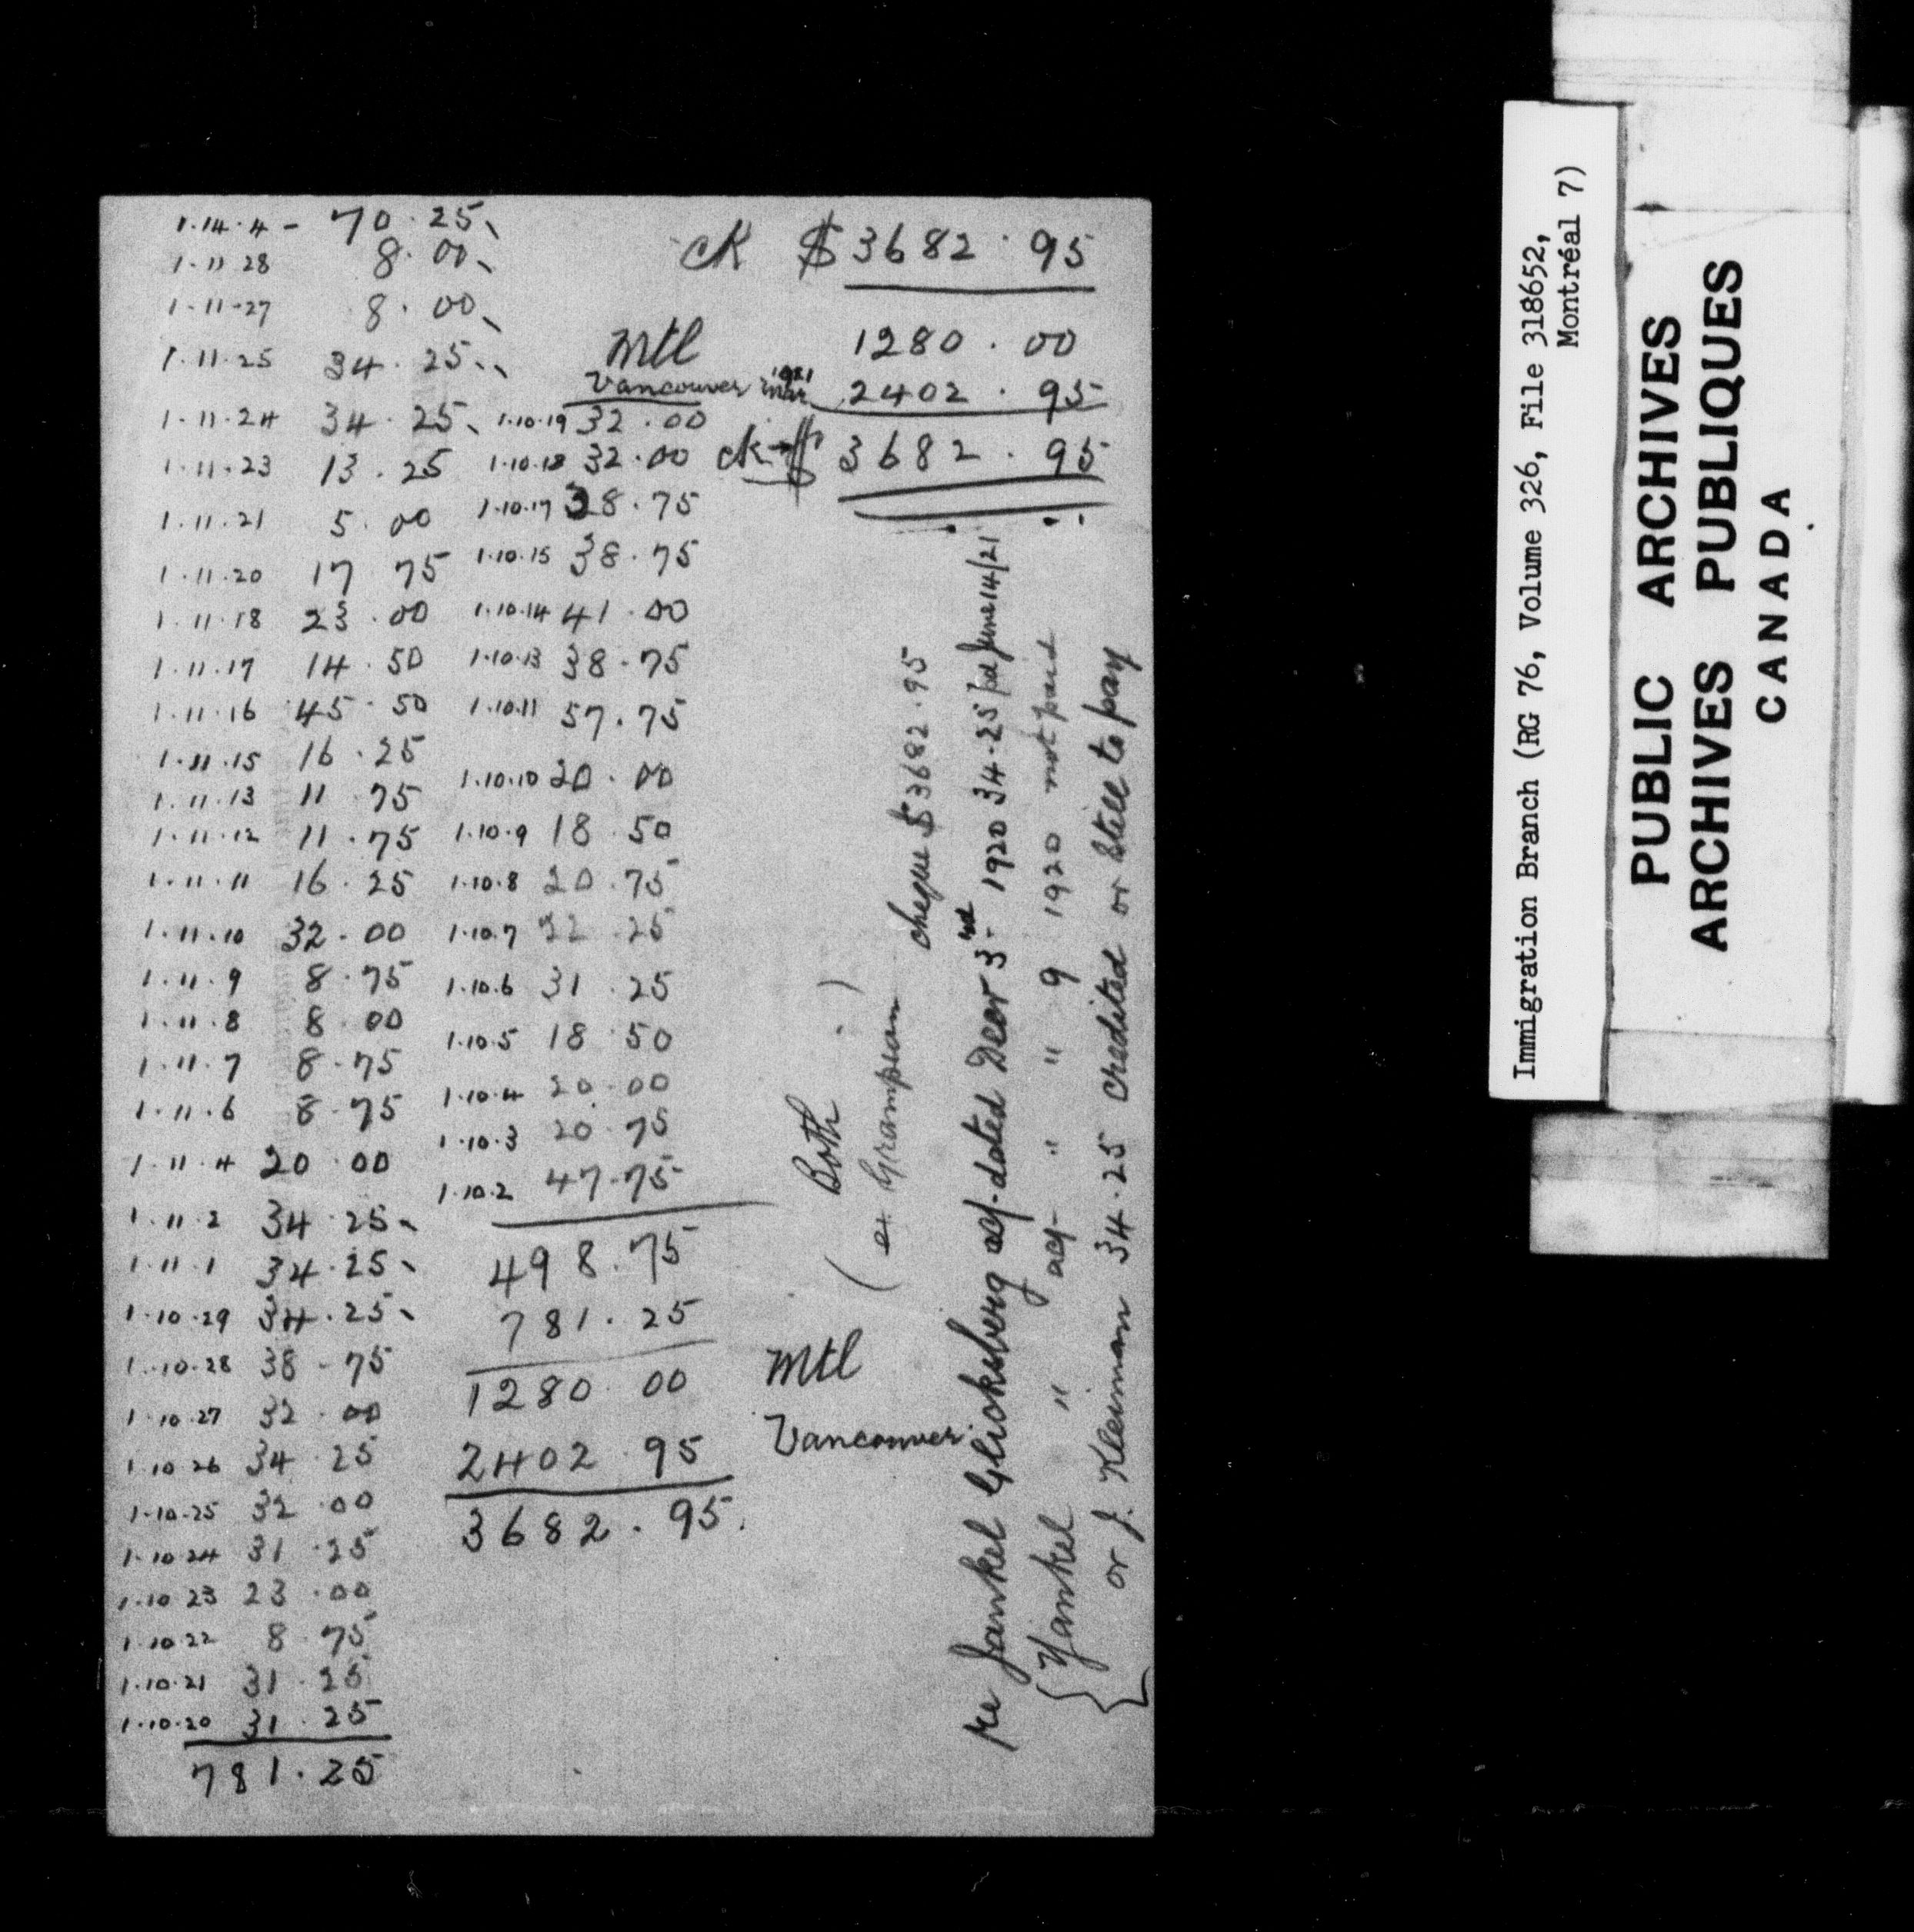 1.14.4 - 70.25
1.11.28 8.00
1.11.27 8.00
1.11.25 34.25
1.11.24 34.25
1.11.23 13.25
1.11.21 5.00
1.11.20 17 75
1.11.18 23.00
1.11.17 14.50
1.11.16 45.50
1.11.15 16.25
1.11.13 11.75
1.11.12 11.75
1.11.11 16.25
1.11.10 32.00
1.11.9 8.75
1.11.8 8.00
1.11.7 8.75
1.11.6 8.75
1.11.4 20.00
1.11.2 34.25
1.11.1 34.25
1.10.29 34.25
1.10.28 38.75
1.10.27 32.00
1.10.26 34.25
1.10.25 32.00
1.10.24 31.25
1.10.23 23.00
1.10.22 8.75
1.10.21 31.25
1.10.20 31.25
781.25
Mtl
Vancouver Mar 1921
1.10.19 32.00
1.10.18 32.00
1.10.17 38.75
1.10.15 38.75
1.10.14 41.00
1.10.13 38.75
1.10.11 57.75
1.10.10 20.00
1.10.9 18.50
1.10.8 20.75
1.10.7 22.25
1.10.6 31.25
1.10.5 18.50
1.10.4 20.00
1.10.3 20.75
1.10.2 47.75
498.75
781.25
1280.00 Mtl
2402.95 Vancouver
3682.95
ck $3682.95
1280.00
2402.95
ck $3682.95
( Both . )
ex Grampian cheque $3682.95
re Jankel Glicksberg acf. dated Decr 3rd 1920 34.25 pd June 14/21
{ Yankel " acf. " " 9 1920 not paid
or J. Kleinman 34.25 credited or still to pay
Immigration Branch (RG 76, Volume 326, File 318652,
Montréal 7)
PUBLIC ARCHIVES
ARCHIVES PUBLIQUES
CANADA